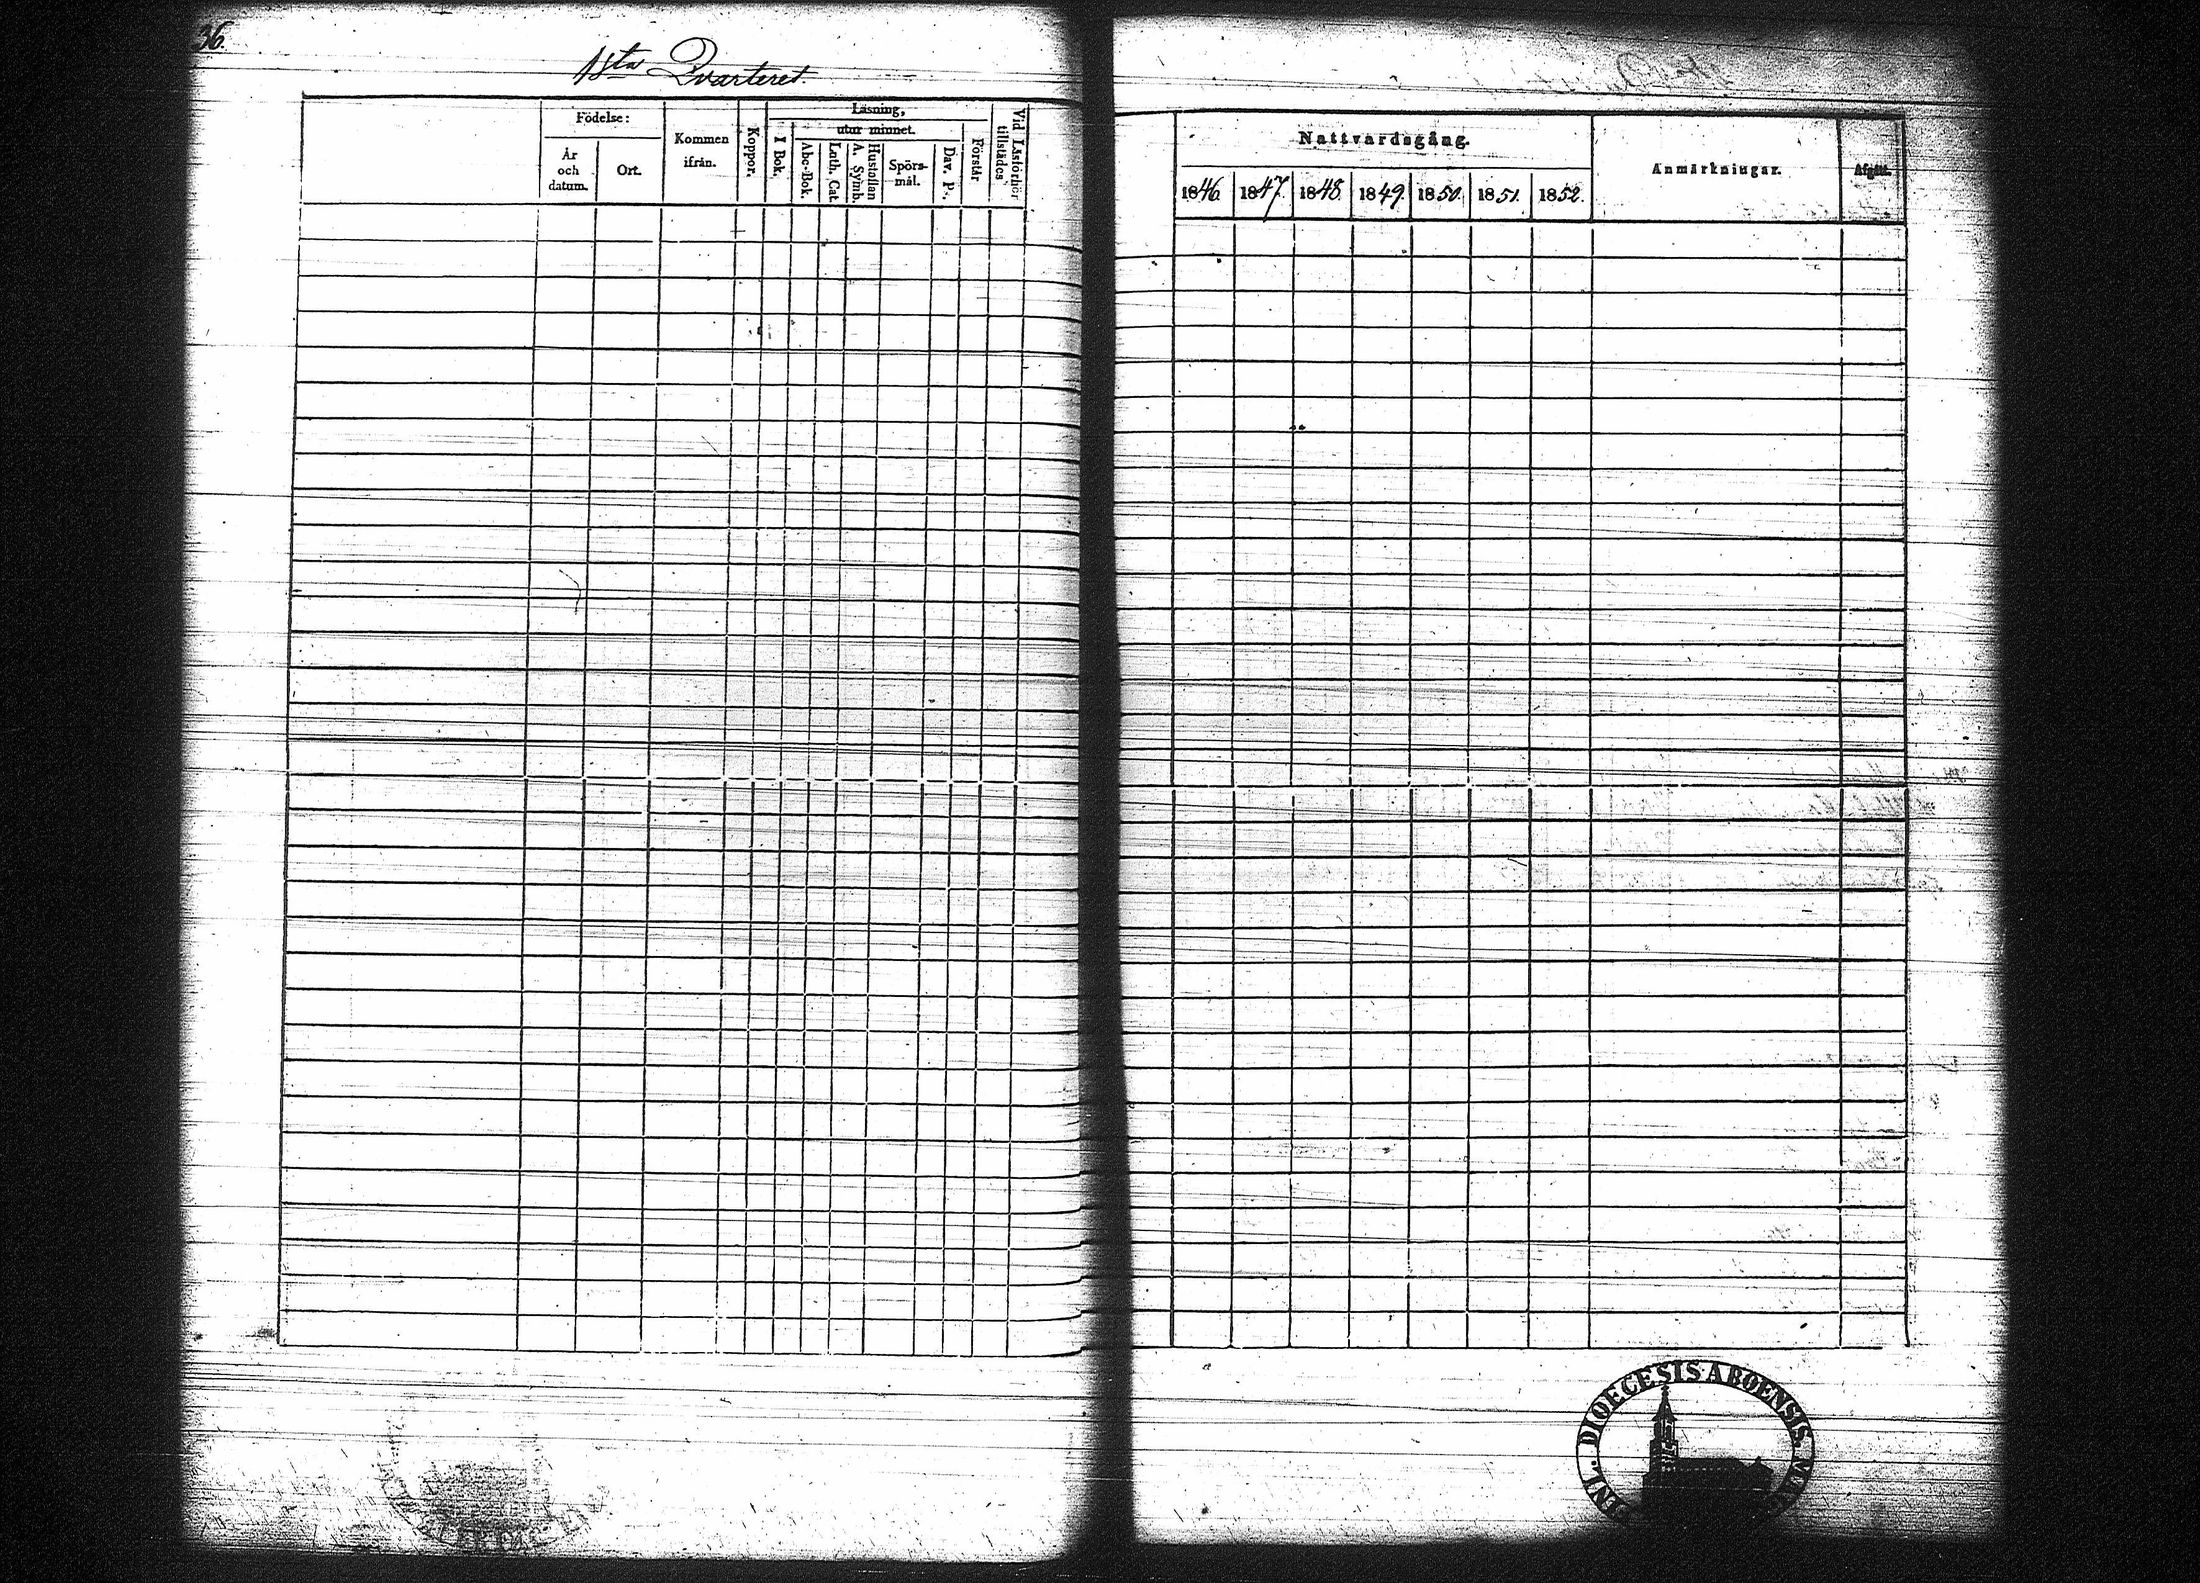 36.
1sta Qvarteret.
Födelse:
År
och
datum.
Ort.
Kommen
ifrån.
Koppor.
Läsning,
I Bok.
utur minnet.
Abc-Bok.
Luth. Cat.
Hustaflan
A. Symb.
Spörs-
mål.
Dav. Ps.
Förstår
Vid Läsförhör
tillstädes
Nattvardsgång.
1846. 1847. 1848. 1849. 1850. 1851. 1852.
Anmärkningar.
Afgått.
DIOECESIS ABOENSIS.